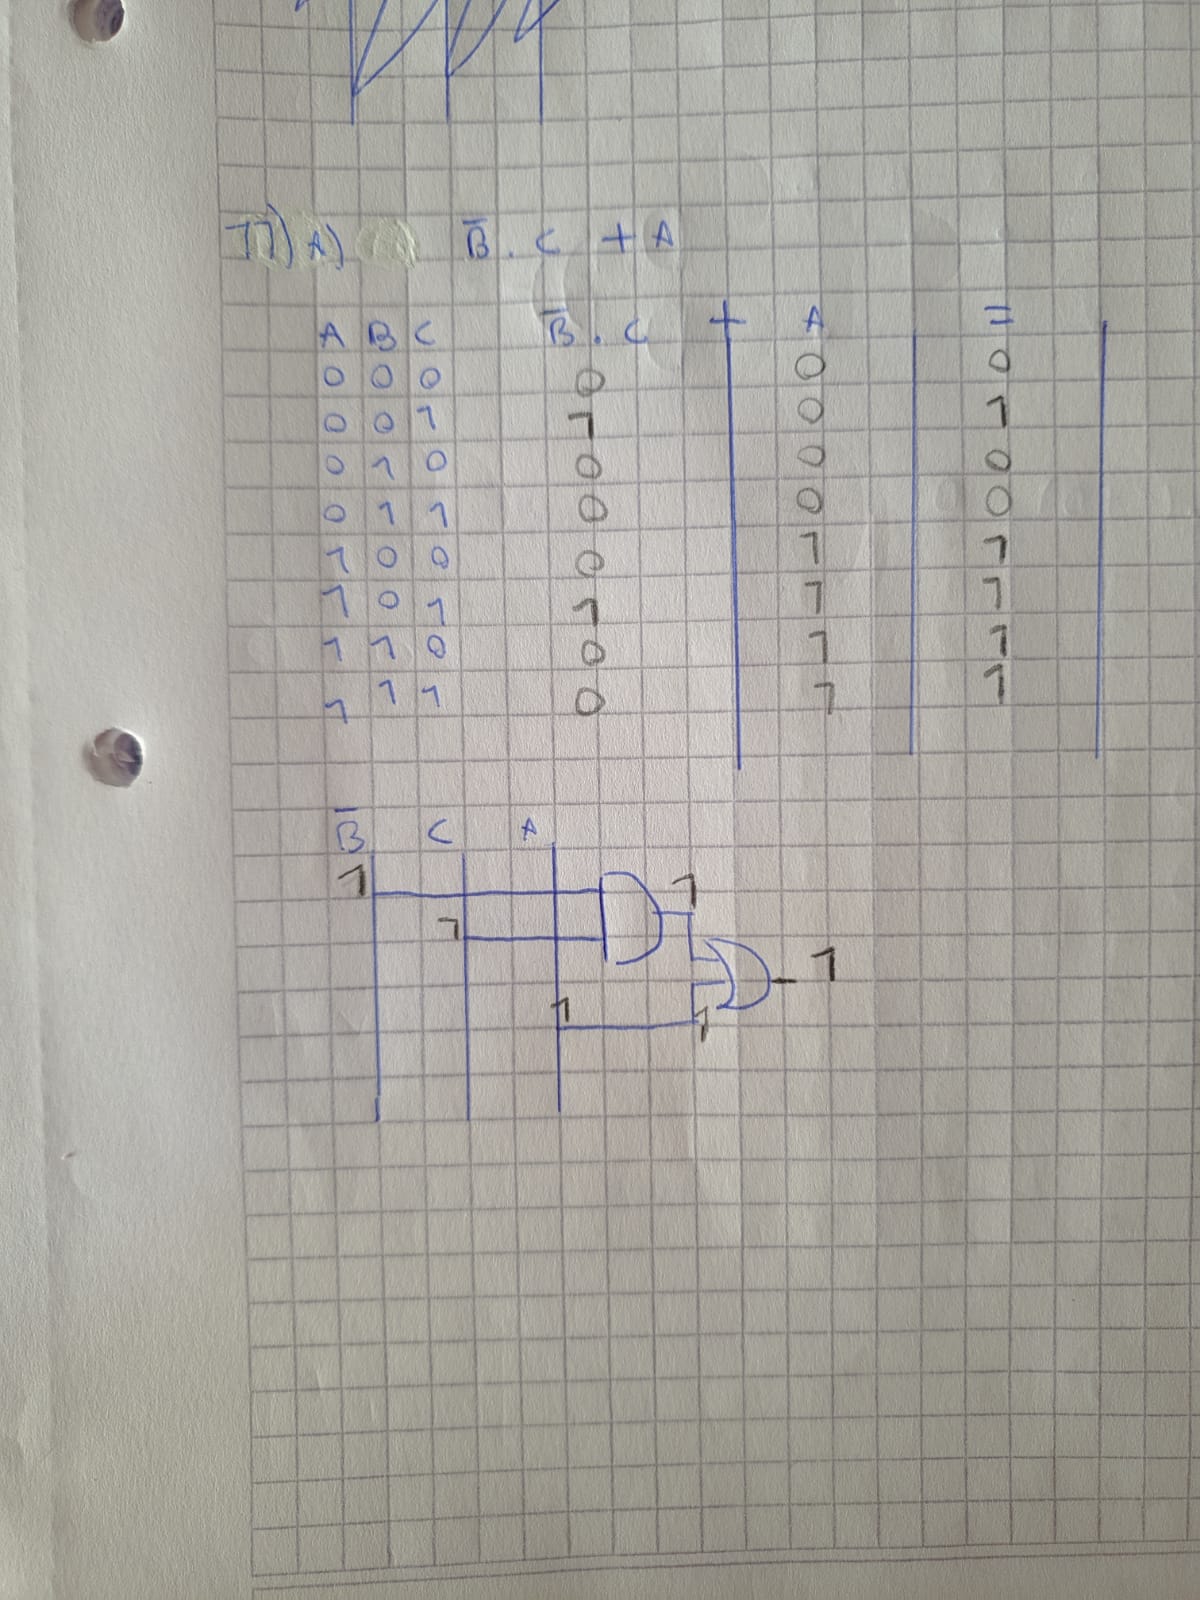 11) A) B̅ . C + A
A B C B̅ . C + A =
0 0 0 0 0 0
0 0 1 1 0 1
0 1 0 0 0 0
0 1 1 0 0 0
1 0 0 0 1 1
1 0 1 1 1 1
1 1 0 0 1 1
1 1 1 0 1 1
B̅ C A
1 1
1 1
1 1